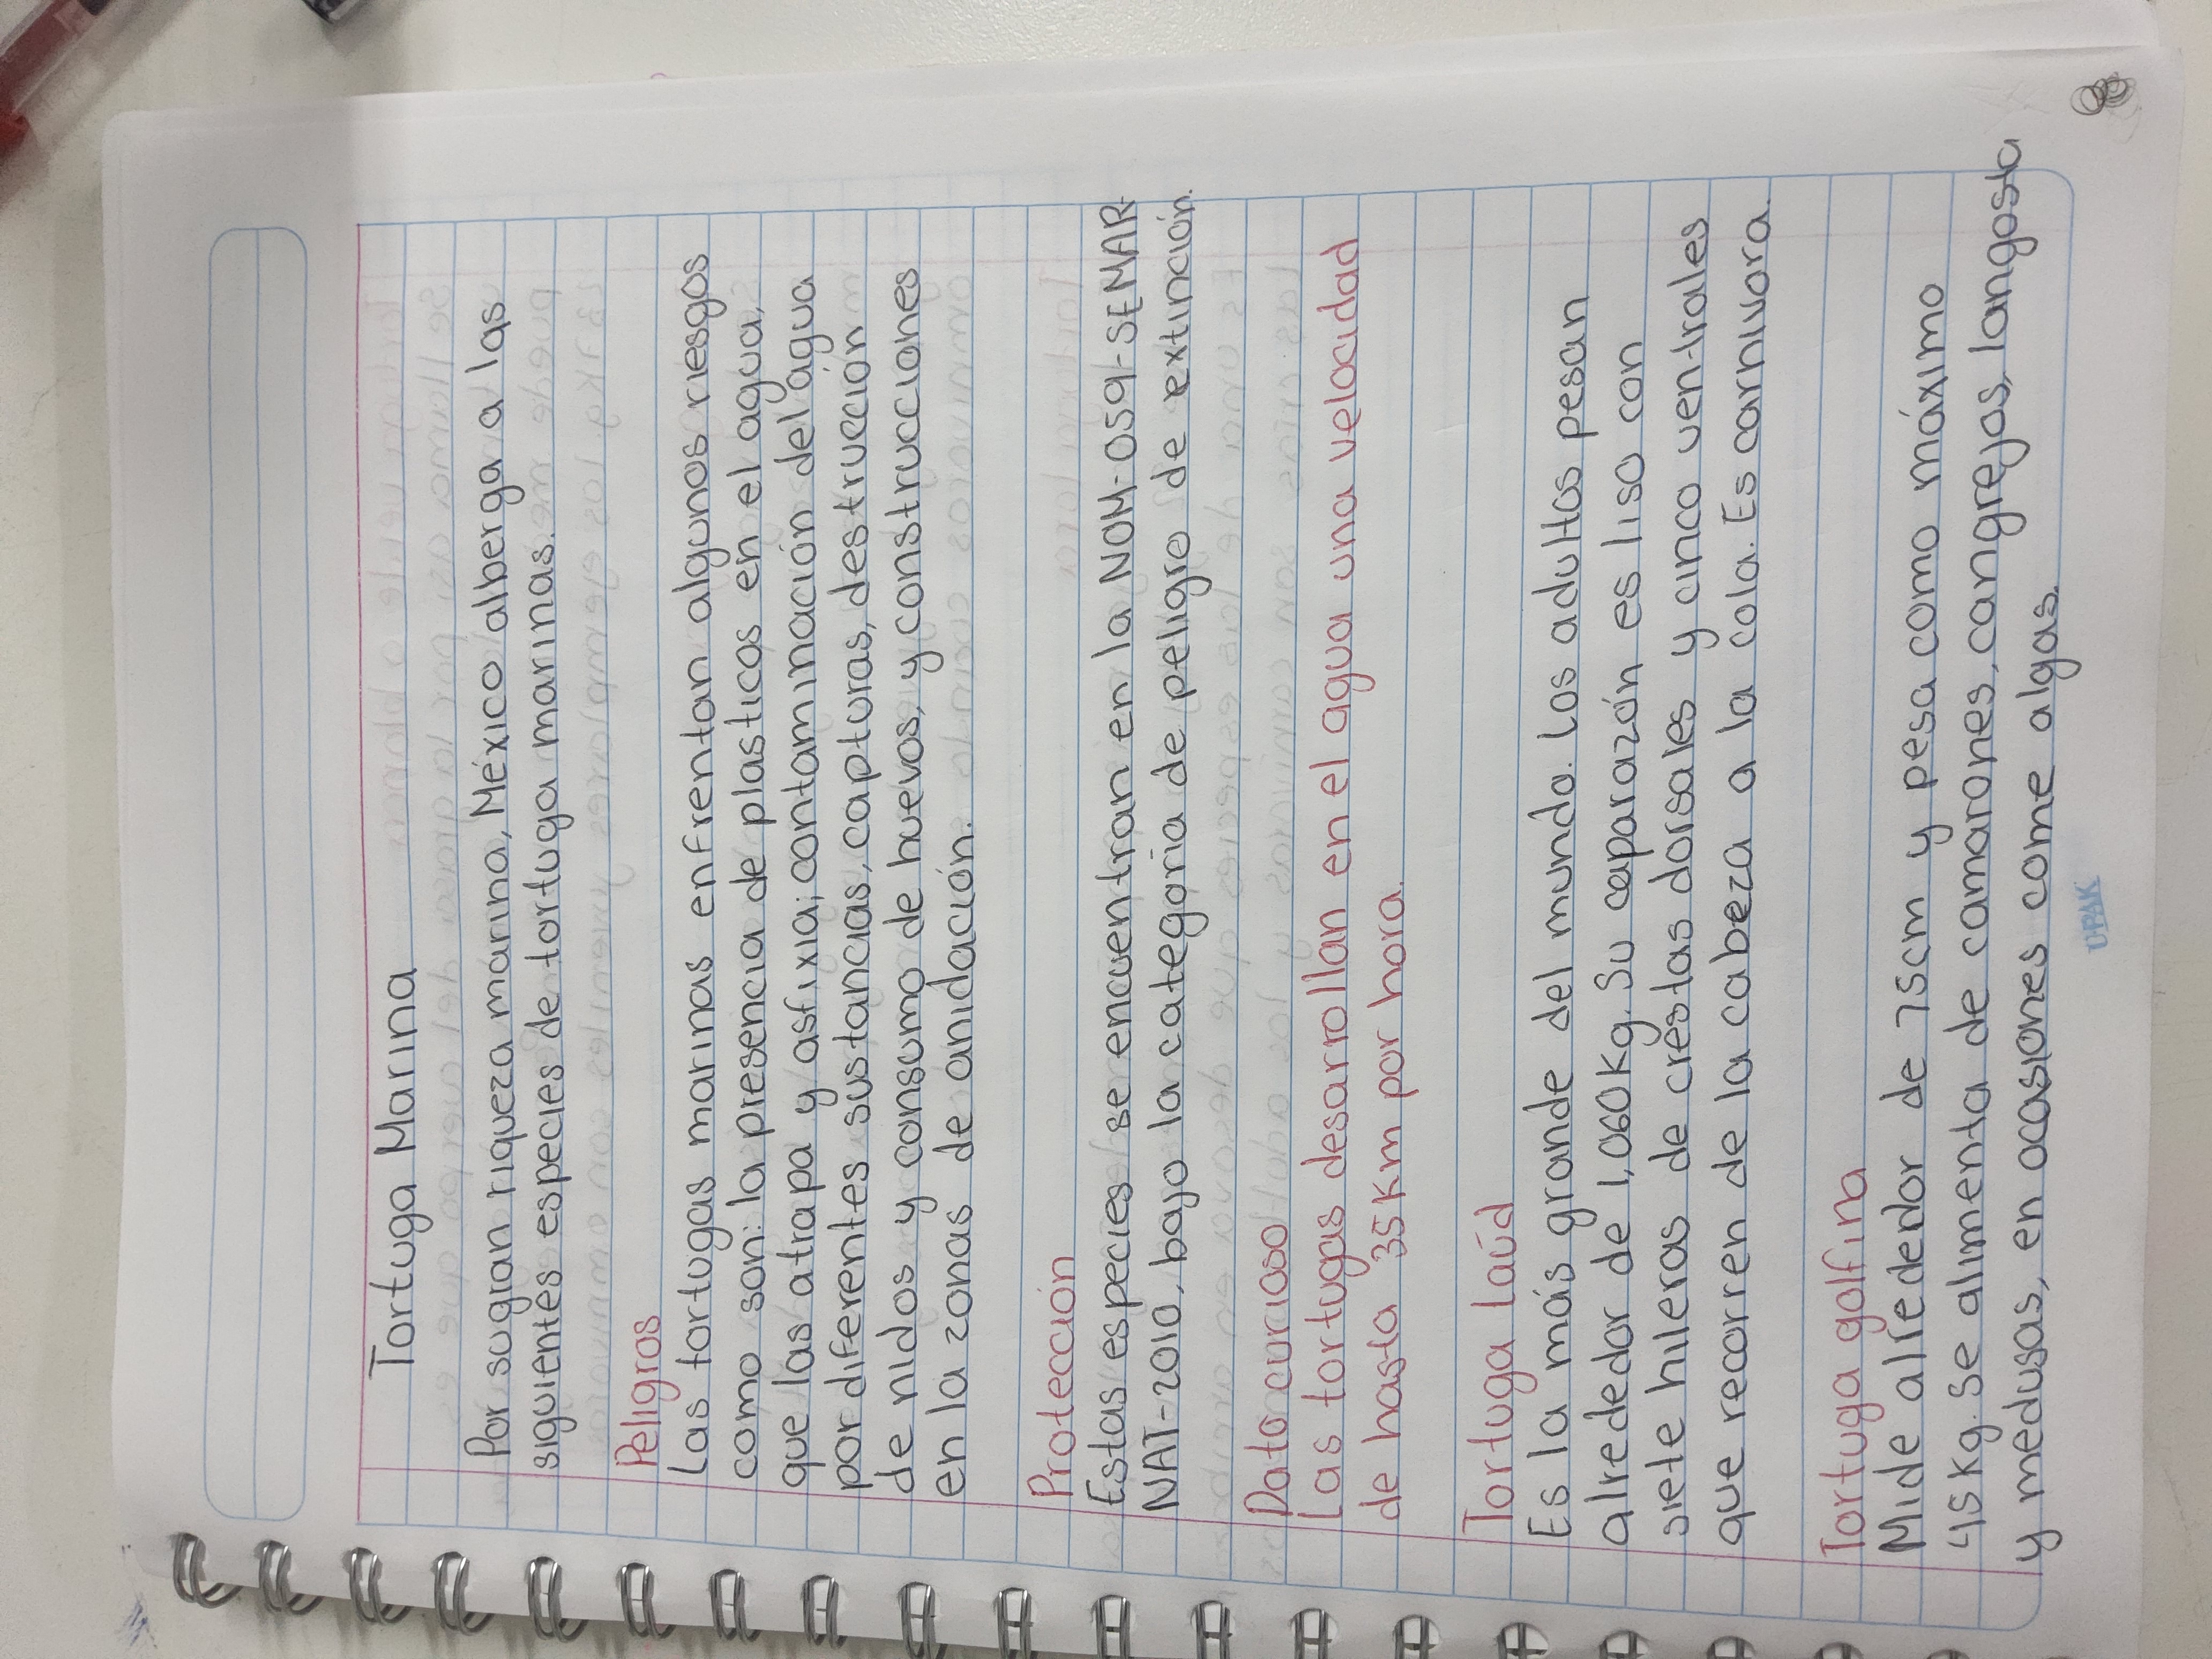 Tortuga Marina
Por su gran riqueza marina, México alberga a las
siguientes especies de tortuga marinas.
Peligros
Las tortugas marinas enfrentan algunos riesgos
como son: la presencia de plasticos en el agua,
que las atrapa y asfixia; contaminación del agua
por diferentes sustancias, capturas, destrucción
de nidos y consumo de huevos, y construcciones
en la zonas de anidación.
Protección
Estas especies se encuentran en la NOM-059-SEMAR-
NAT-2010, bajo la categoria de peligro de extinción.
Dato curioso
Las tortugas desarrollan en el agua una velocidad
de hasta 35km por hora.
Tortuga Laúd
Es la más grande del mundo. Los adultos pesan
alrededor de 1,060kg. Su caparazón es liso con
siete hileras de crestas dorsales y cinco ventrales
que recorren de la cabeza a la cola. Es carnivora.
Tortuga golfina
Mide alrededor de 75cm y pesa como máximo
45kg. Se alimenta de camarones, cangrejos, langosta
y medusas, en ocasiones come algas.